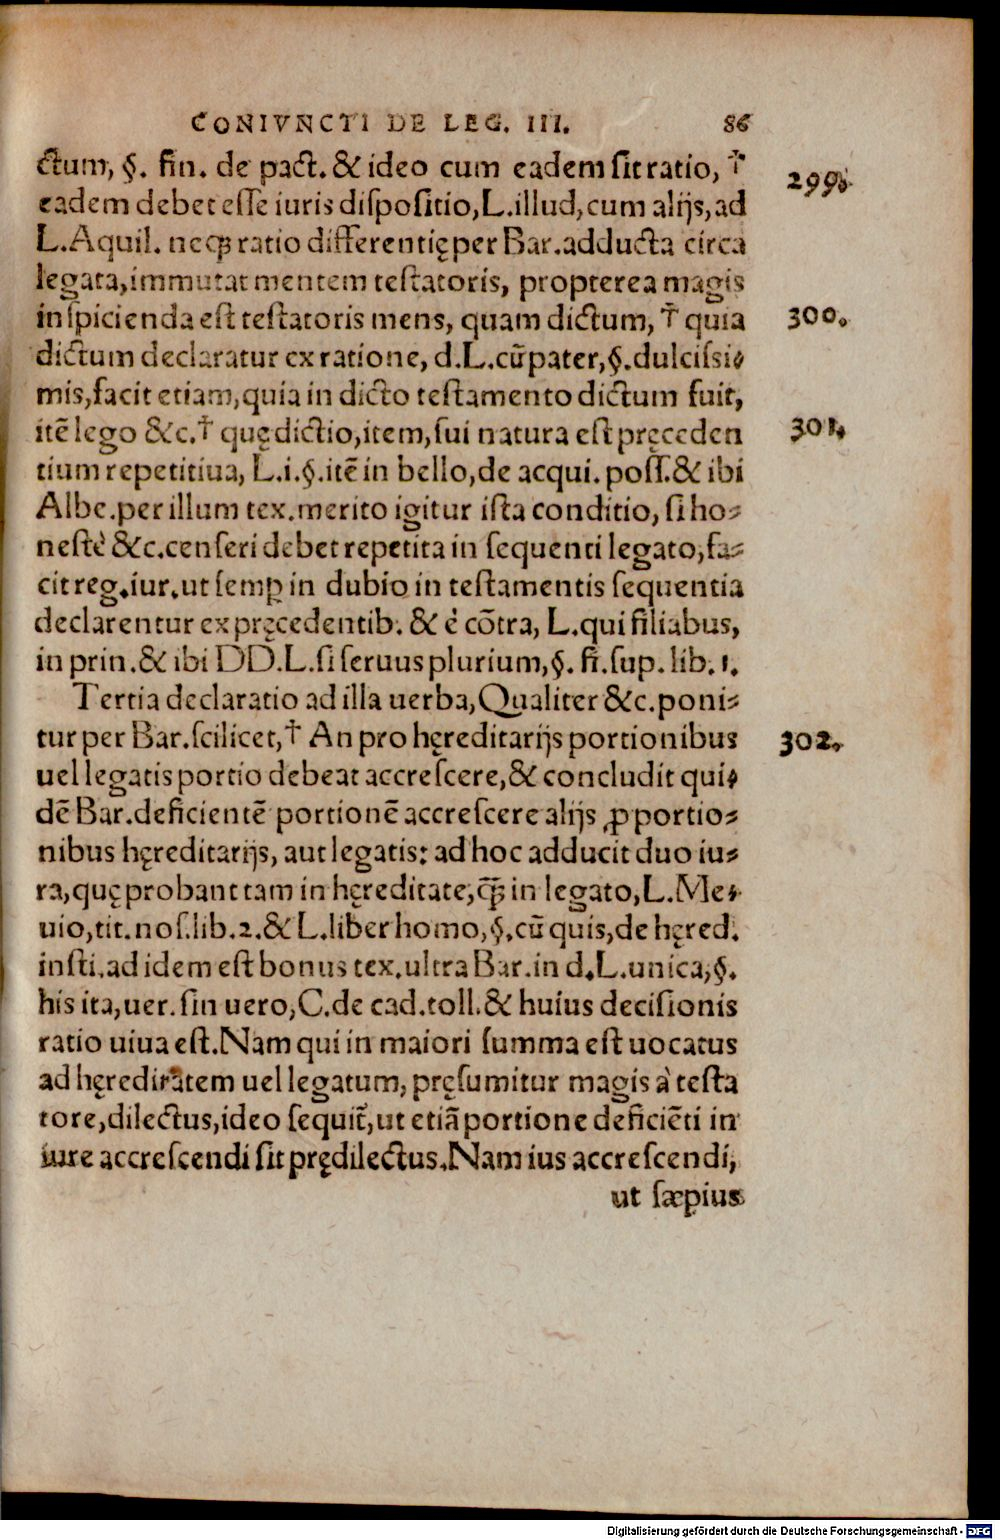 CONIVNCTI DE LEG. III. 86
ctum, §. fin. de pact. & ideo cum eadem sit ratio, † 299.
eadem debet esse iuris dispositio, L. illud, cum alijs, ad
L. Aquil. neqꝫ ratio differentię per Bar. adducta circa
legata, immutat mentem testatoris, propterea magis
inspicienda est testatoris mens, quam dictum, † quia 300.
dictum declaratur ex ratione, d. L. cũ pater, §. dulcissi-
mis, facit etiam, quia in dicto testamento dictum fuit,
itẽ lego &c. † quę dictio, item, sui natura est pręceden 301.
tium repetitiua, L. i. §. itẽ in bello, de acqui. poss. & ibi
Albe. per illum tex. merito igitur ista conditio, si ho-
nestè &c. censeri debet repetita in sequenti legato, fa-
cit reg. iur. ut semꝑ in dubio in testamentis sequentia
declarentur ex pręcedentib. & è cõtra, L. qui filiabus,
in prin. & ibi DD. L. si seruus plurium, §. fi. sup. lib. 1.
Tertia declaratio ad illa uerba, Qualiter &c. poni-
tur per Bar. scilicet, † An pro hęreditarijs portionibus 302.
uel legatis portio debeat accrescere, & concludit qui-
dẽ Bar. deficientẽ portionẽ accrescere alijs ꝓ portio-
nibus hęreditarijs, aut legatis: ad hoc adducit duo iu-
ra, quę probant tam in hęreditate, ꝙ̃ in legato, L. Me-
uio, tit. nos. lib. 2. & L. liber homo, §. cũ quis, de hęred.
insti. ad idem est bonus tex. ultra Bar. in d. L. unica, §.
his ita, uer. sin uero, C. de cad. toll. & huius decisionis
ratio uiua est. Nam qui in maiori summa est uocatus
ad hęreditatem uel legatum, pręsumitur magis à testa
tore, dilectus, ideo sequit̃, ut etiã portione deficiẽti in
iure accrescendi sit prędilectus. Nam ius accrescendi,
ut sæpius
Digitalisierung gefördert durch die Deutsche Forschungsgemeinschaft - DFG